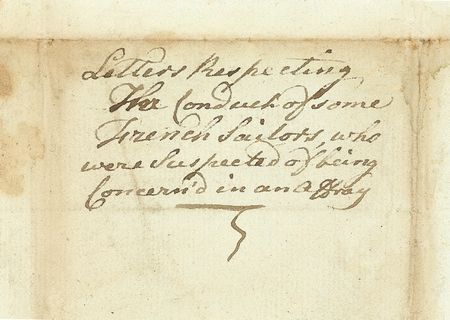 Letters Respecting
The Conduct of some
French Sailors, who
were Suspected of being
Concern'd in an Affray